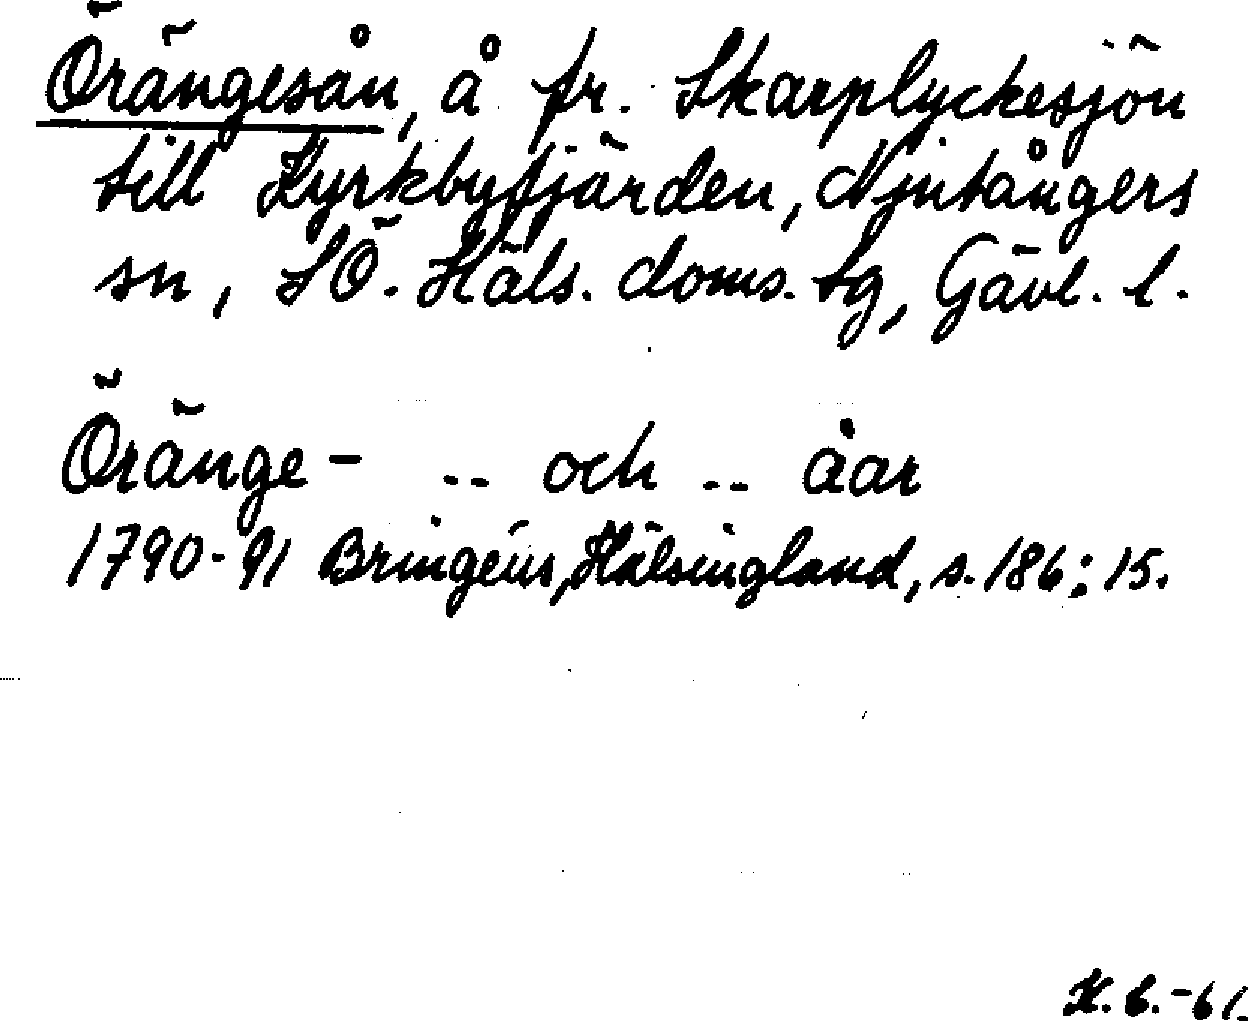 Örängesån, å fr. Skarplyckesjön
till Kyrkbyfjärden, Njutångers
sn, SÖ. Häls. doms. tg, Gävl. l.
Öränge- .. och .. åar
1790-91 Bringéus, Hälsingland, s. 186: 15.
K.B.-61.